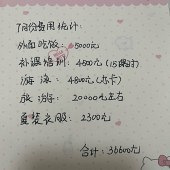 7月份费用统计:
外面吃饭: 5000元
补课培训: 4500元(15课时)
游泳: 4800元(办卡)
旅游: 20000元左右
童装衣服: 2300元
合计: 36600元